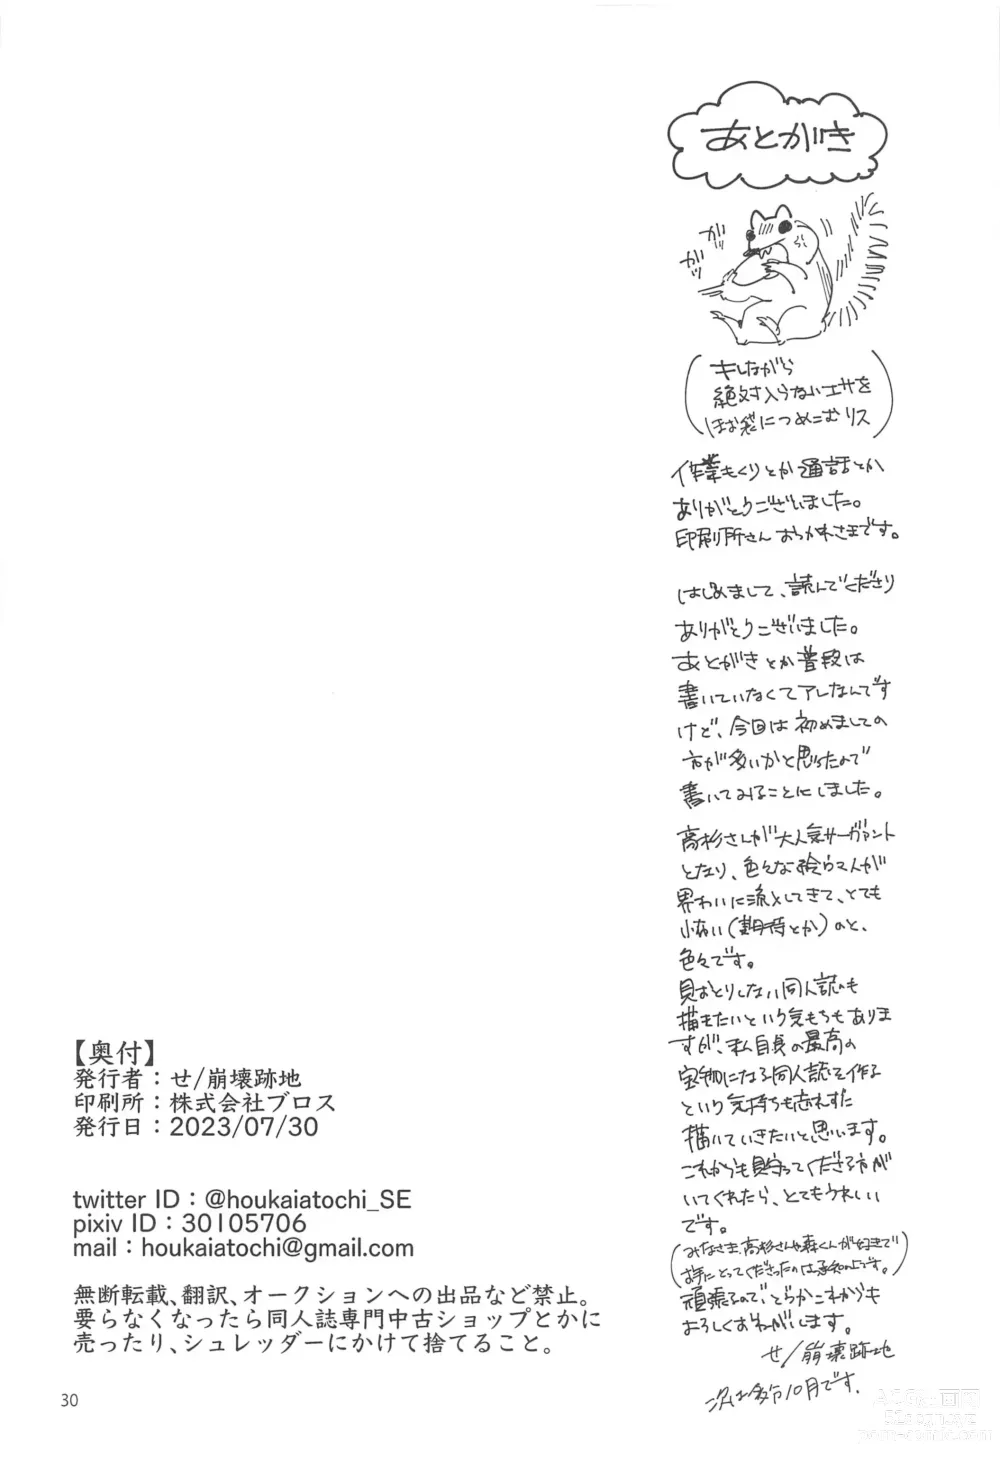 あとがき
ガッ
ガッ
(キレながら
絶対入らないエサを
ほお袋につめこむリス)
作業もくりとか通話とか
ありがとうございました。
印刷所さんおつかれさまです。
はじめまして、読んでくださり
ありがとうございました。
あとがきとか普段は
書いていなくてアレなんです
けど、今回は初めましての
方が多いかと思ったので
書いてみることにしました。
高杉さんが大人気サーヴァント
となり、色々な絵ウマ人が
界わいに流入してきて、とても
小布い(期待とか)のと、
色々です。
見おとりしない同人誌も
描きたいという気もちもありま
すが、私自身の最高の
宝物になる同人誌を作る
という気持ちも忘れずに
描いていきたいと思います。
これからも見守ってくださる方が
いてくれたら、とてもうれしい
です。
(みなさま、高杉さんや森くんが好きで
お手にとってくださったのは承知の上です。)
頑張るので、どうかこれからも
よろしくおねがいします。
せ/崩壊跡地
次は多分10月です。
【奥付】
発行者：せ/崩壊跡地
印刷所：株式会社ブロス
発行日：2023/07/30
twitter ID：@houkaiatochi_SE
pixiv ID：30105706
mail：houkaiatochi@gmail.com
無断転載、翻訳、オークションへの出品など禁止。
要らなくなったら同人誌専門中古ショップとかに
売ったり、シュレッダーにかけて捨てること。
30